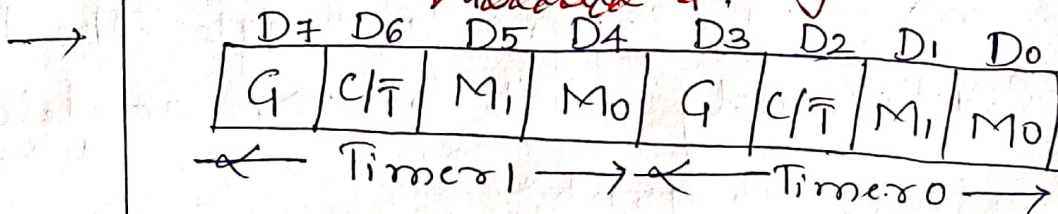 D7 D6 D5 D4 D3 D2 D1 D0
G C/T̅ M1 M0 G C/T̅ M1 M0
Timer1 Timer0